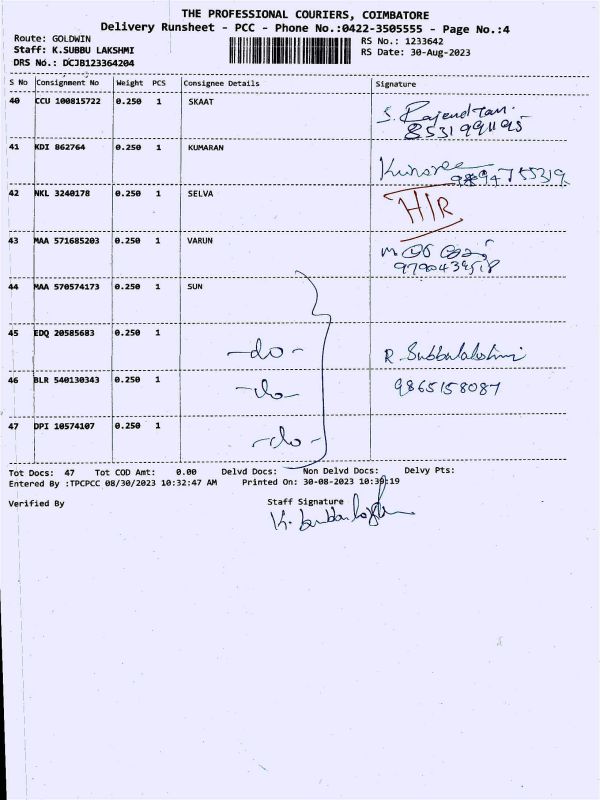 THE PROFESSIONAL COURIERS, COIMBATORE
Delivery Runsheet - PCC - Phone No.:0422-3505555 - Page No.:4
Route: GOLDWIN
RS No.: 1233642
Staff: K.SUBBU LAKSHMI
RS Date: 30-Aug-2023
DRS No.: DCJB123364204
S No Consignment No Weight PCS Consignee Details Signature
40 CCU 100815722 0.250 1 SKAAT S. Rajendran.
8531991195
41 KDI 862764 0.250 1 KUMARAN
42 NKL 3240178 0.250 1 SELVA H/R
43 MAA 571685203 0.250 1 VARUN
44 MAA 570574173 0.250 1 SUN
45 EDQ 20585683 0.250 1 -do- R. Subbulakshmi
46 BLR 540130343 0.250 1 -do- 9865158087
47 DPI 10574107 0.250 1 -do-
Tot Docs: 47 Tot COD Amt: 0.00 Delvd Docs: Non Delvd Docs: Delvy Pts:
Entered By :TPCPCC 08/30/2023 10:32:47 AM Printed On: 30-08-2023 10:39:19
Verified By Staff Signature
K. Subbulakshmi